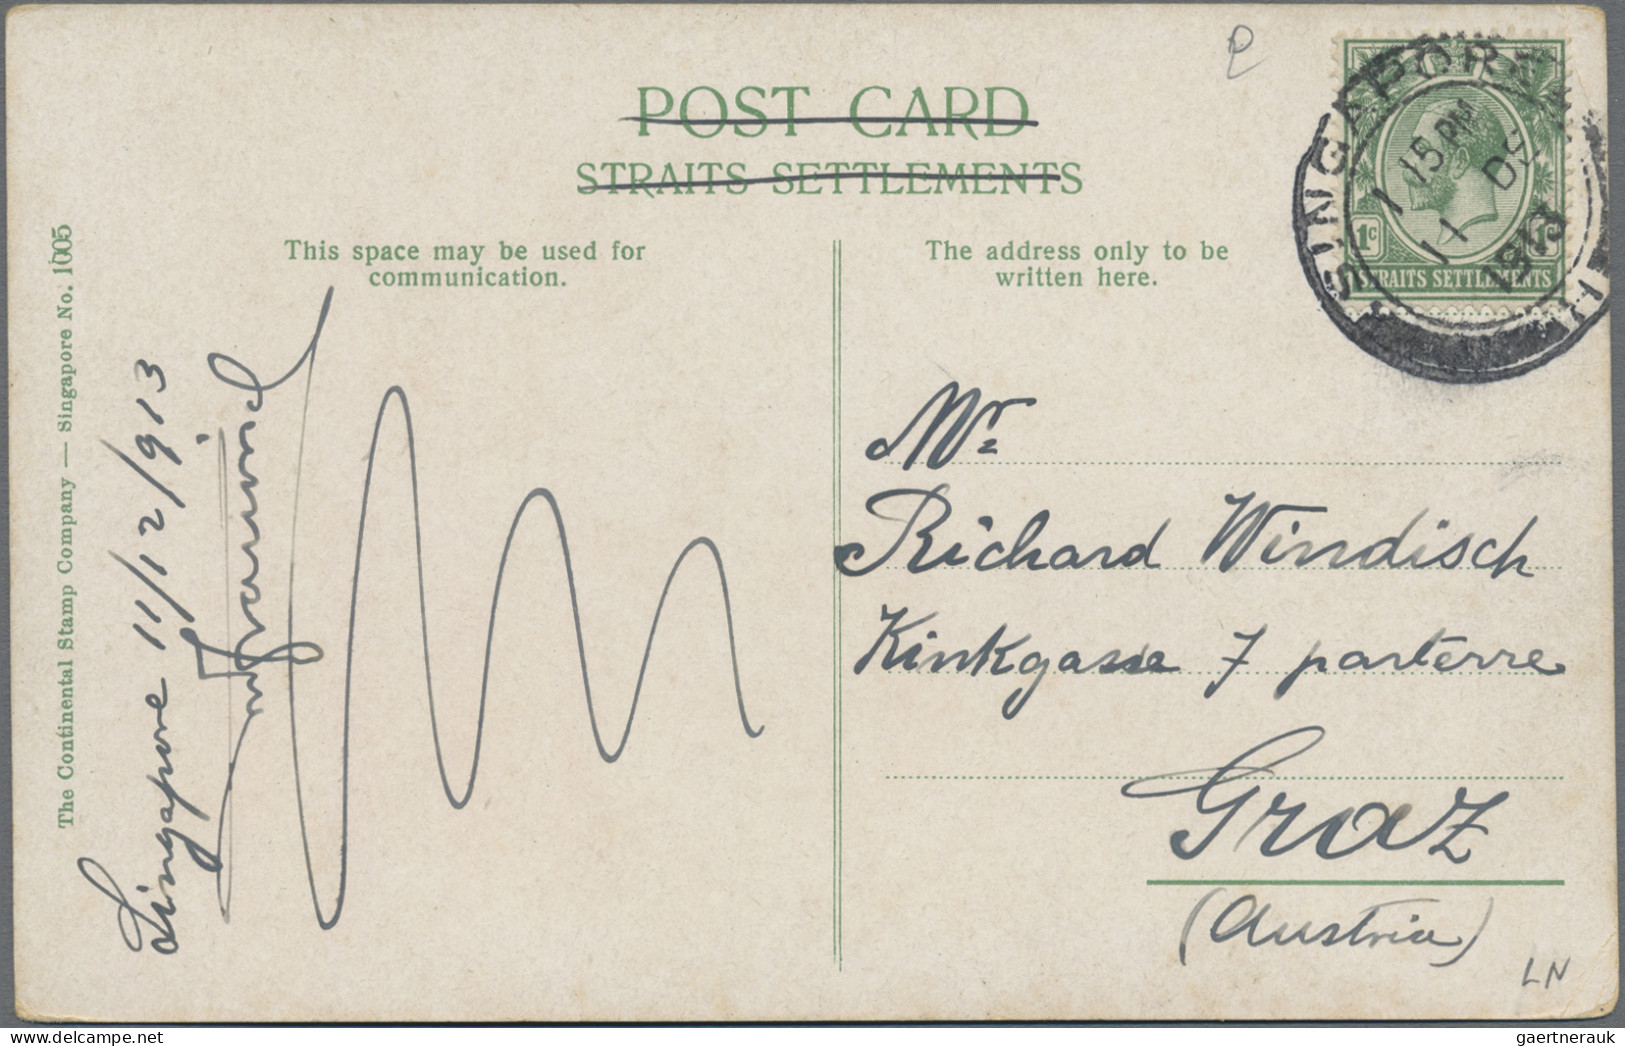 POST CARD
STRAITS SETTLEMENTS
This space may be used for
communication.
The address only to be
written here.
The Continental Stamp Company — Singapore No. 1005
Singapore 11/12/913
Mr
Richard Windisch
Kinkgasse 7 parterre
Graz
(Austria)
LN
SINGAPORE
1 15 PM
11 DE
1913
1c 1c
STRAITS SETTLEMENTS
gaertnerauk